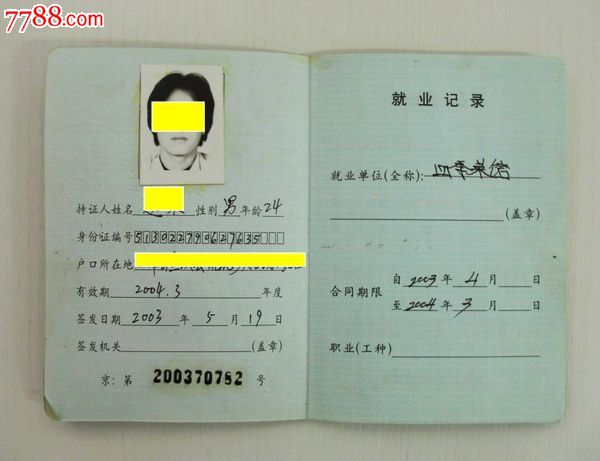 7788.com
持证人姓名 性别 男 年龄 24
身份证编号 513022790627635
户口所在地
有效期 2004.3 年度
签发日期 2003 年 5 月 19 日
签发机关 (盖章)
京:第 200370782 号
就业记录
就业单位(全称): 四季菜馆
(盖章)
合同期限
自 2003 年 4 月 日
至 2004 年 3 月 日
职业(工种)